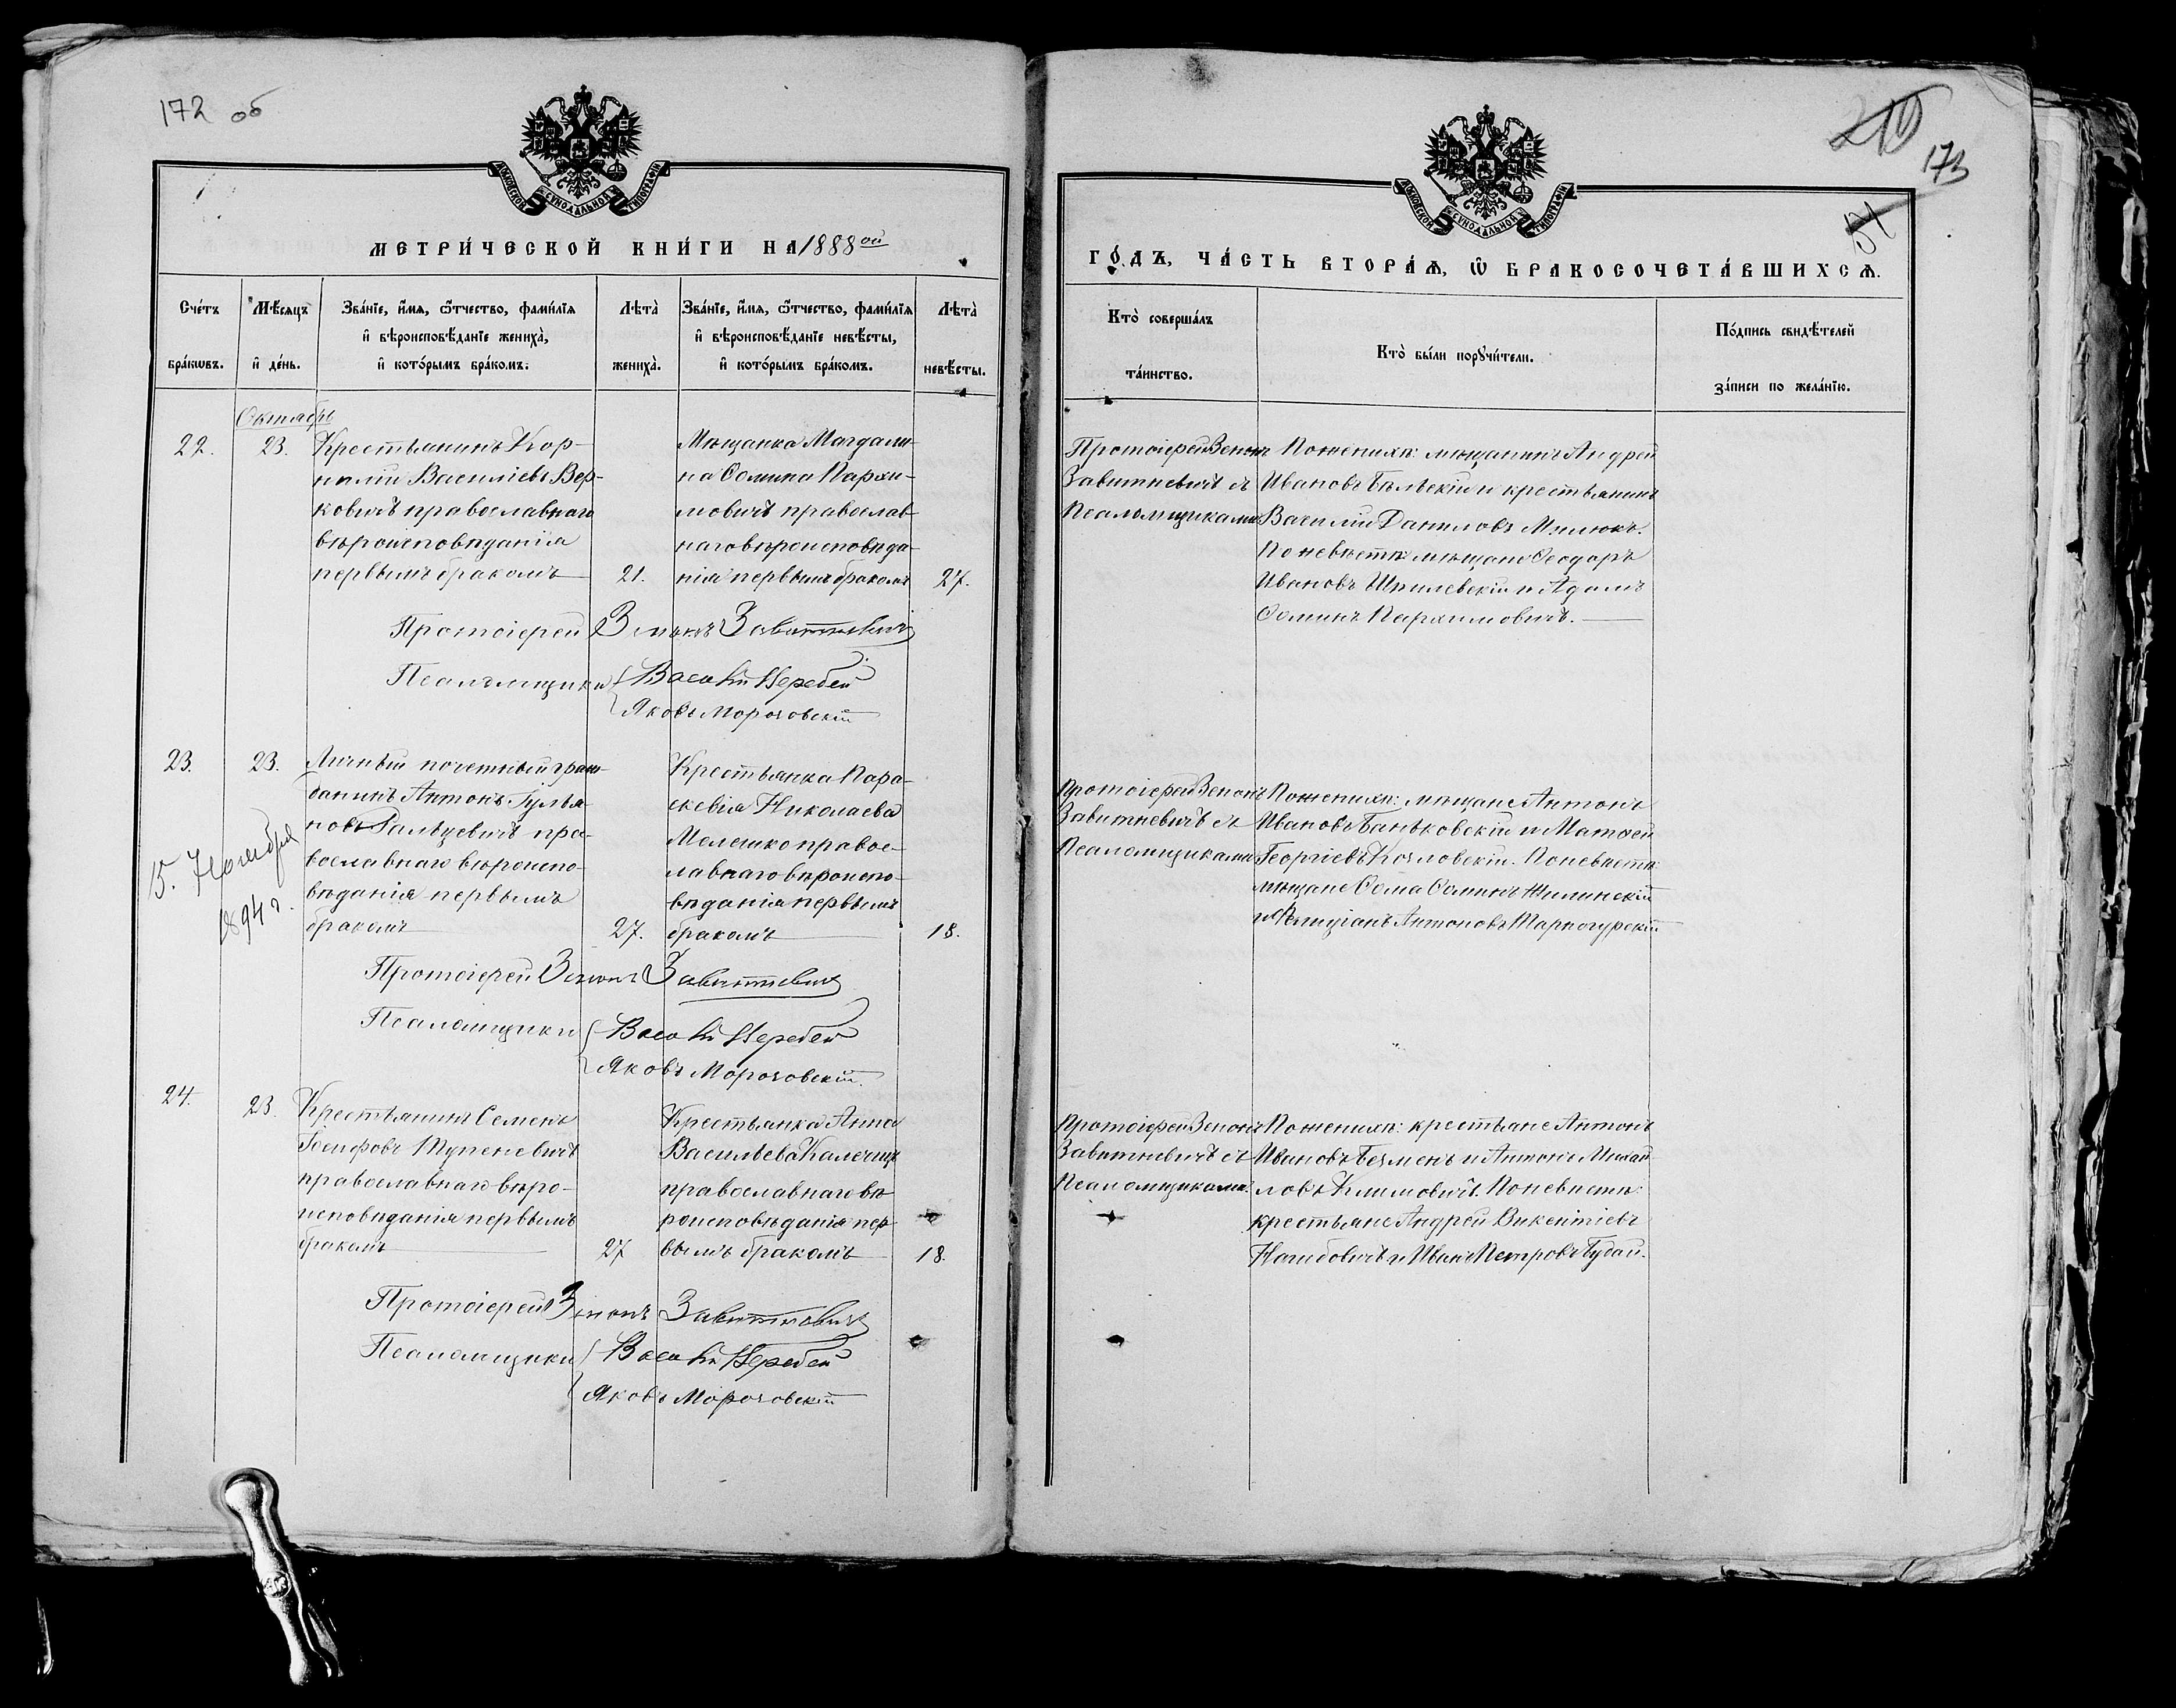 172 об
МОСКОВСКОЙ СѴНОДАЛЬНОЙ ТИПОГРАФІИ
МЕТРИ́ЧЕСКОЙ КНИ́ГИ НА 1888 ой
Сче́тъ бра́кѡвъ.
Мѣ́сяцъ и҆ де́нь.
Зва́нїе, и҆́мѧ, ѻ҆́тчество, фами́лїѧ
и҆ вѣроисповѣ́данїе жениха̀,
и҆ кото́рымъ бра́комъ.
Лѣта̀ жениха̀.
Зва́нїе, и҆́мѧ, ѻ҆́тчество, фами́лїѧ
и҆ вѣроисповѣ́данїе невѣ́сты,
и҆ кото́рымъ бра́комъ.
Лѣта̀ невѣ́сты.
Октябрь
22.
23.
Крестьянинъ Кор-
нилій Васильевъ Вер-
ковичъ православнаго
вѣроисповѣданія
первымъ бракомъ
21.
Мѣщанка Магдали-
на Ѳомина Пархи-
мовичъ православ-
наго вѣроисповѣда-
нія первымъ бракомъ
27.
Протоіерей Зенонъ Завитневичъ
Псаломщики Василій Жеребей
Яковъ Морозовскій
23.
23.
Личный почетный граж-
данинъ Антонъ Гулья-
новъ Сальцевичъ пра-
вославнаго вѣроиспо-
вѣданія первымъ
бракомъ
27.
15. Ноября
1894 г.
Крестьянка Пара-
скевія Николаева
Мелешко правос-
лавнаго вѣроиспо-
вѣданія первымъ
бракомъ
18.
Протоіерей Зенонъ Завитневичъ
Псаломщики Василій Жеребей
Яковъ Морозовскій
24.
23.
Крестьянинъ Семенъ
Іосифовъ Тупеневичъ
православнаго вѣро-
исповѣданія первымъ
бракомъ
27
Крестьянка Анна
Васильева Калечиц
православнаго вѣ
роисповѣданія пер
вымъ бракомъ
18.
Протоіерей Зенонъ Завитневичъ
Псаломщики Василій Жеребей
Яковъ Морозовскій
173
МОСКОВСКОЙ СѴНОДАЛЬНОЙ ТИПОГРАФІИ
ГО́ДЪ, ЧА́СТЬ ВТОРА́Ѧ, Ѡ҆ БРАКОСОЧЕТА́ВШИХСѦ.
Кто̀ соверша́лъ та́инство.
Кто̀ бы́ли порꙋчи́тели.
По́дпись свидѣ́телей за́писи по жела́нїю.
Протоіерей Зенонъ
Завитневичъ съ
Псаломщиками
По женихѣ: мѣщанинъ Андрей
Ивановъ Бѣльскій и крестьянинъ
Василій Даниловъ Милюкъ.
По невѣстѣ: мѣщане Ѳеодоръ
Ивановъ Шпилевскій и Адамъ
Ѳоминъ Пархимовичъ.
Протоіерей Зенонъ
Завитневичъ съ
Псаломщиками
По женихѣ: мѣщане Антонъ
Ивановъ Баньковскій и Матѳей
Георгіевъ Козловскій. По невѣстѣ:
мѣщане Ѳома Ѳоминъ Жилинскій
и Фелиціанъ Антоновъ Тарногурскій
Протоіерей Зенонъ
Завитневичъ съ
Псаломщиками.
По женихѣ: крестьяне Антонъ
Ивановъ Безменъ и Антонъ Михай
ловъ Климовичъ. По невѣстѣ:
крестьяне Андрей Викентіевъ
Нашбовичъ и Иванъ Петровъ Губай.